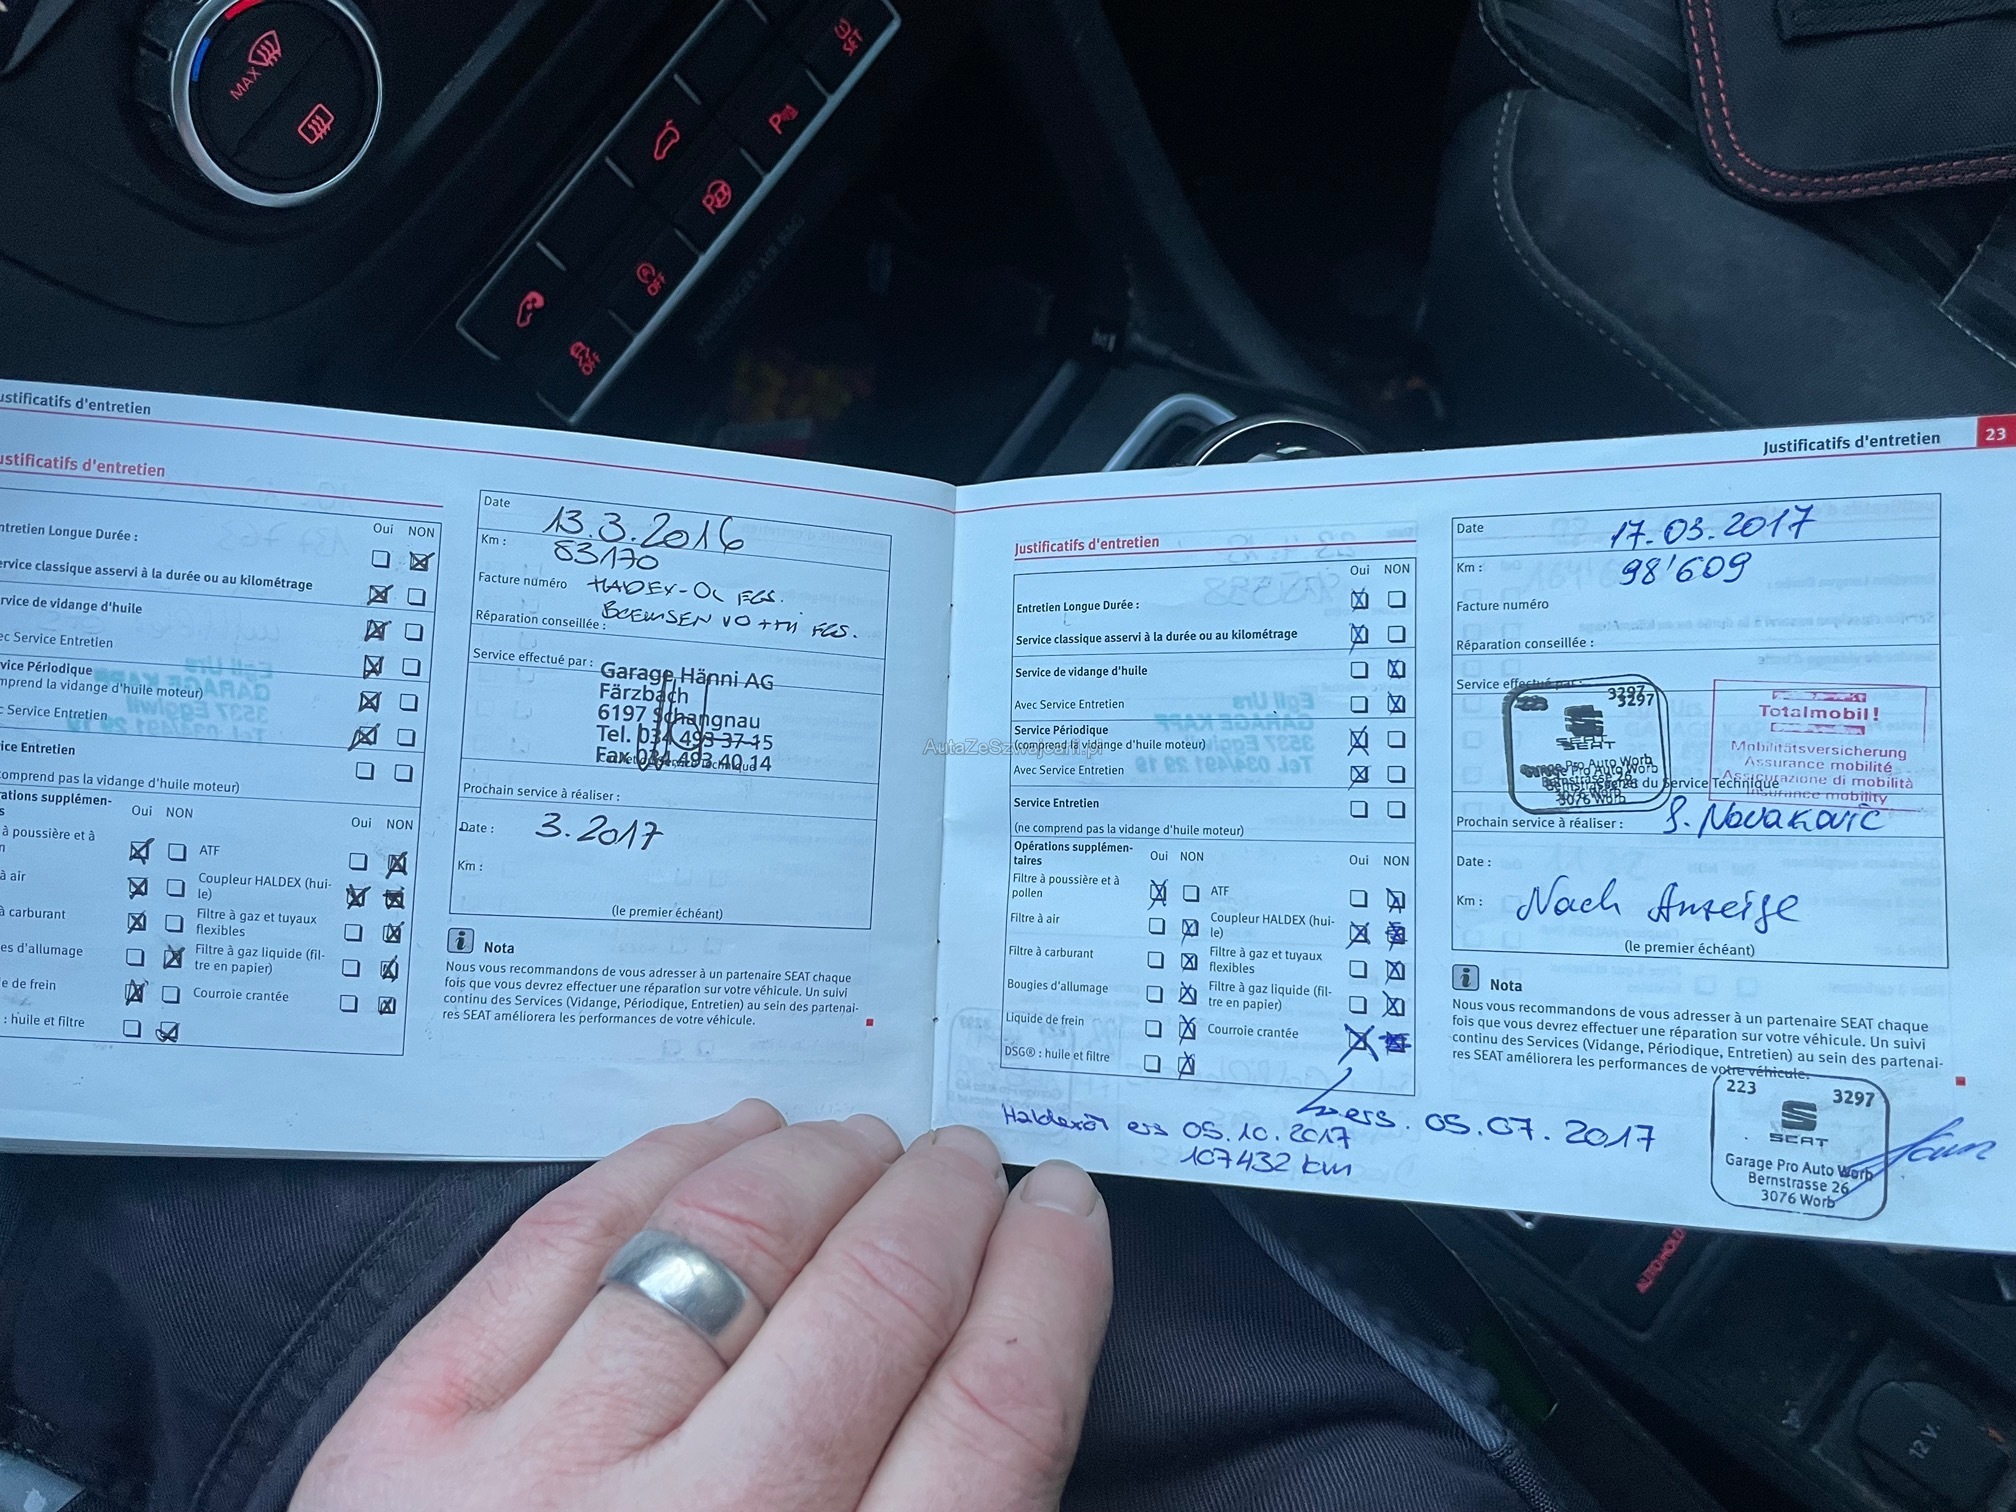 MAX
SET
P
OFF
OFF
PASSENGER AIR BAG
ustificatifs d'entretien
ustificatifs d'entretien
Oui NON
ntretien Longue Durée :
ervice classique asservi à la durée ou au kilométrage
rvice de vidange d'huile
ec Service Entretien
vice Périodique
mprend la vidange d'huile moteur)
c Service Entretien
ice Entretien
comprend pas la vidange d'huile moteur)
rations supplémen-
s
Oui NON
Oui NON
à poussière et à
n
ATF
à air
Coupleur HALDEX (hui-
le)
à carburant
Filtre à gaz et tuyaux
flexibles
es d'allumage
Filtre à gaz liquide (fil-
tre en papier)
e de frein
Courroie crantée
: huile et filtre
Date
13.3.2016
Km :
83170
Facture numéro
HADEX-OL EGS.
Réparation conseillée :
Service effectué par :
Garage Hänni AG
Färzbach
6197 Schangnau
Tel. 034 493 37 15
Fax 034 493 40 14
Prochain service à réaliser :
Date :
3.2017
Km :
(le premier échéant)
Nota
Nous vous recommandons de vous adresser à un partenaire SEAT chaque
fois que vous devrez effectuer une réparation sur votre véhicule. Un suivi
continu des Services (Vidange, Périodique, Entretien) au sein des partenai-
res SEAT améliorera les performances de votre véhicule.
Justificatifs d'entretien
23
Justificatifs d'entretien
Oui NON
Entretien Longue Durée :
Service classique asservi à la durée ou au kilométrage
Service de vidange d'huile
Avec Service Entretien
Service Périodique
(comprend la vidange d'huile moteur)
Avec Service Entretien
Service Entretien
(ne comprend pas la vidange d'huile moteur)
Opérations supplémen-
taires
Oui NON
Oui NON
Filtre à poussière et à
pollen
ATF
Filtre à air
Coupleur HALDEX (hui-
le)
Filtre à carburant
Filtre à gaz et tuyaux
flexibles
Bougies d'allumage
Filtre à gaz liquide (fil-
tre en papier)
Liquide de frein
Courroie crantée
DSG® : huile et filtre
Haldexöl ers 05.10.2017
107432 km
ers. 05.07.2017
Date
17.03.2017
Km :
98'609
Facture numéro
Réparation conseillée :
Service effectué par :
223 3297
SEAT
Garage Pro Auto Worb
Bernstrasse 26
3076 Worb
Totalmobil!
Mobilitätsversicherung
Assurance mobilité
Assicurazione di mobilità
Insurance mobility
du Service Technique
Prochain service à réaliser :
S. Novakovic
Date :
Km :
Nach Anzeige
(le premier échéant)
Nota
Nous vous recommandons de vous adresser à un partenaire SEAT chaque
fois que vous devrez effectuer une réparation sur votre véhicule. Un suivi
continu des Services (Vidange, Périodique, Entretien) au sein des partenai-
res SEAT améliorera les performances de votre véhicule.
223 3297
SEAT
Garage Pro Auto Worb
Bernstrasse 26
3076 Worb
AutaZeSzwajcarii.pl
AUTO HOLD
12 V.